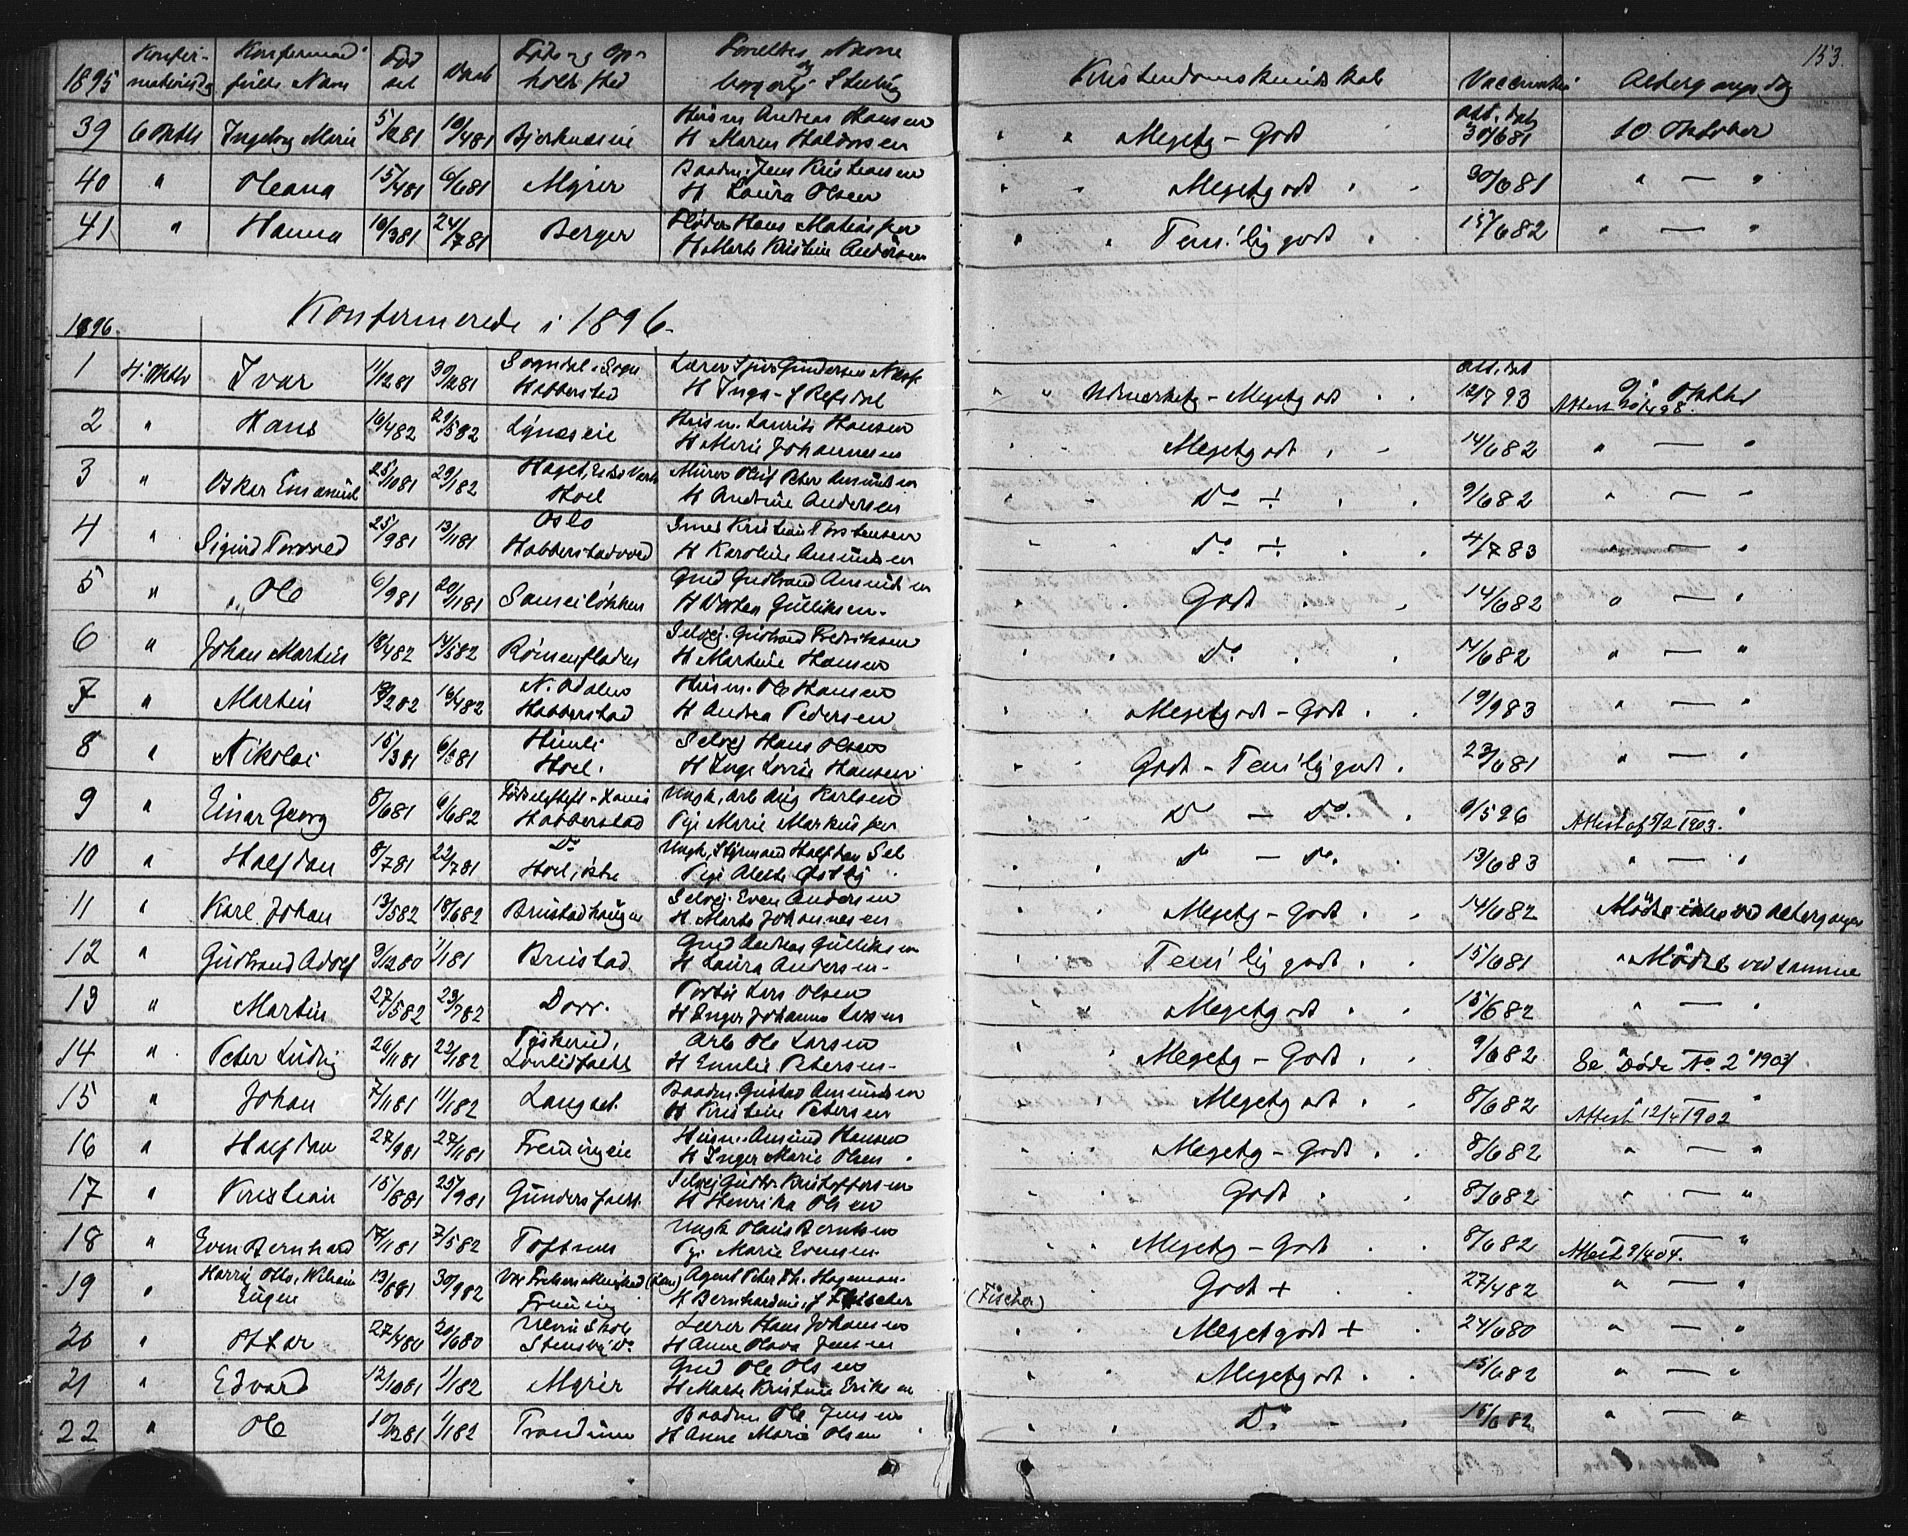 153.
1895 Konfir- mationsdag Konfirmand fulde Navn Født Døbt Føde- og Op- holdsted Forældres Navne og borgerlige Stilling Kristendomskundskab Vaccination Altergangsdag
39 6 Oktbr Ingeborg Marie 5/2 81 10/4 81 Bjørknæseie Husm Andreas Hansen
H Maren Haldorsen " " Megetg - Godt att. dat 30/6 81 10 Oktober
40 " Oleana 15/4 81 6/6 81 Myrer Baadm. Jens Kristiansen
H Laura Olsen " " Megetgodt 30/6 81 " — "
41 " Hanna 10/3 81 24/7 81 Berger Fløder Hans Mathias
H Marte Kristine Andersen " " Temlig godt 15/6 82 " — "
Konfirmerede i 1896.
1896.
1 4. Oktbr Ivar 11/12 81 Sogndal i Sogn
Habberstad Lærer Gundersen
H Inga f Refsdal " " Udmærketg - Megetgodt att. dat 12/7 93 9 Oktbr
Attest 98.
2 " Hans 10/4 82 29/5 82 Lynæseie Husm. Laurits Hansen
H Marie Johannesen " " Megetgodt 14/6 82 " — "
3 " Oskar Emanuel 25/10 81 29/1 82 Haget,
Hoel Murer Peter Amundsen
H Andrine Andersen " " Do ÷ 9/6 82 " — "
4 " Sigurd Torvald 25/9 81 13/11 81 Oslo
Habberstadeved Smed Kristian Torstensen
H Karoline Amundsen " " Do ÷ 4/7 83 " — "
5 " Ole 6/9 81 20/11 81 Sameiløkken Grd Gudbrand Amundsen
H Dorthea Gulliksen. " " Godt 14/6 82 " — "
6 " Johan Martin 18/4 82 14/5 82 Rømenfladen Selvej. Gudbrand Fredriksen
H Martine Hansen " " Do. 14/6 82 " — "
7 " Martin 16/4 82 N. Odalen
Habberstad Husm. Ole Hansen
H Andrea Pedersen " " Megetgodt - Godt 19/9 83 " — "
8 " Nikolai 15/3 81 6/6 81 Himle
Hoel. Selvej Hans Olsen
H Inge Lovise Hansen " " Godt - Temlig godt 23/6 81 " — "
9 " Einar Georg 8/6 81 6/6 82 Fødselsstift. Xania
Habberstad Ungk. Arb Aug Karlsen
Pige Marie " " Do — Do. 6/5 96 Attest af 5/2 1903. "
10 " Halfdan 8/7 81 22/7 81 Do
Hoel, østre Ungk, Styrmand Halfdan
Pige Alette Østby " " Do — Do. 13/6 83 " — "
11 " Karl Johan 13/5 82 18/6 82 Brustadhaugen Selvej. Even Andersen
H Marte Johannesen " " Megetg - Godt 14/6 82 Mødte ikke ved Altergangen
12 " Gudbrand Adolf 9/12 80 1/1 81 Brustad Grd Andreas Gulliksen
H Laura Andersen. " " Temlig godt 15/6 81 " Mødte ved samme
13 " Martin 27/5 82 23/7 82 Dorr. Lars Olsen
H Inger Johanne Larsen " " Megetgodt 15/6 82 " — "
14 " Peter Ludvig 26/11 81 22/1 82 Tyskerud,
Lundsfaldet Arb Ole Larsen
H Emilie Petersen. " " Megetg - Godt 9/6 82 Se Døde No 2 1904
15 " Johan 7/11 81 11/1 82 Langset. Baadm. Gustav Amundsen
H Kristine Petersen " " Megetgodt 8/6 82 Attest 12/4 1902
16 " Halfdan 27/9 81 27/11 81 Fremingeie Husm. Amund Hansen
H Inger Marie Olsen " " Megetg - Godt 8/6 82 " — "
17 " Kristian 15/8 81 25/9 81 Gundersfaldet Selvej Gudbr. Kristoffersen
H Henrika Olsen " " Godt 8/6 82 " — "
18 " Even Bernhard 17/11 81 7/5 82 Toftnes Ungk Hans Berntsen
Pige Marie Evensen. " " Megetg - Godt 8/6 82 Attest 9/4 04. "
19 " Harry Otto, Vilhelm
Eugen 13/8 81 30/9 82 Vor Frelsers Menighed (Xania)
Freming Agent Peter Th. Hageman.
H Bernhardine f Fischer (Fischer) " Godt + 27/4 82 " — "
20 " Ottar 27/4 80 20/6 80
Stensby Do Lærer Hans Johansen
H Anne Olava Jensen " " Megetgodt + 24/6 80 " — "
21 " Edvard 12/10 81 1/1 82 Myrer Grd Ole Olsen
H Marte Kristine Eriksen " " Megetgodt 15/6 82 " — "
22 " Ole 10/12 81 1/1 82 Trondum Baadm Ole Jensen
H Anne Marie Olsen " " Do. 15/6 82 " — "